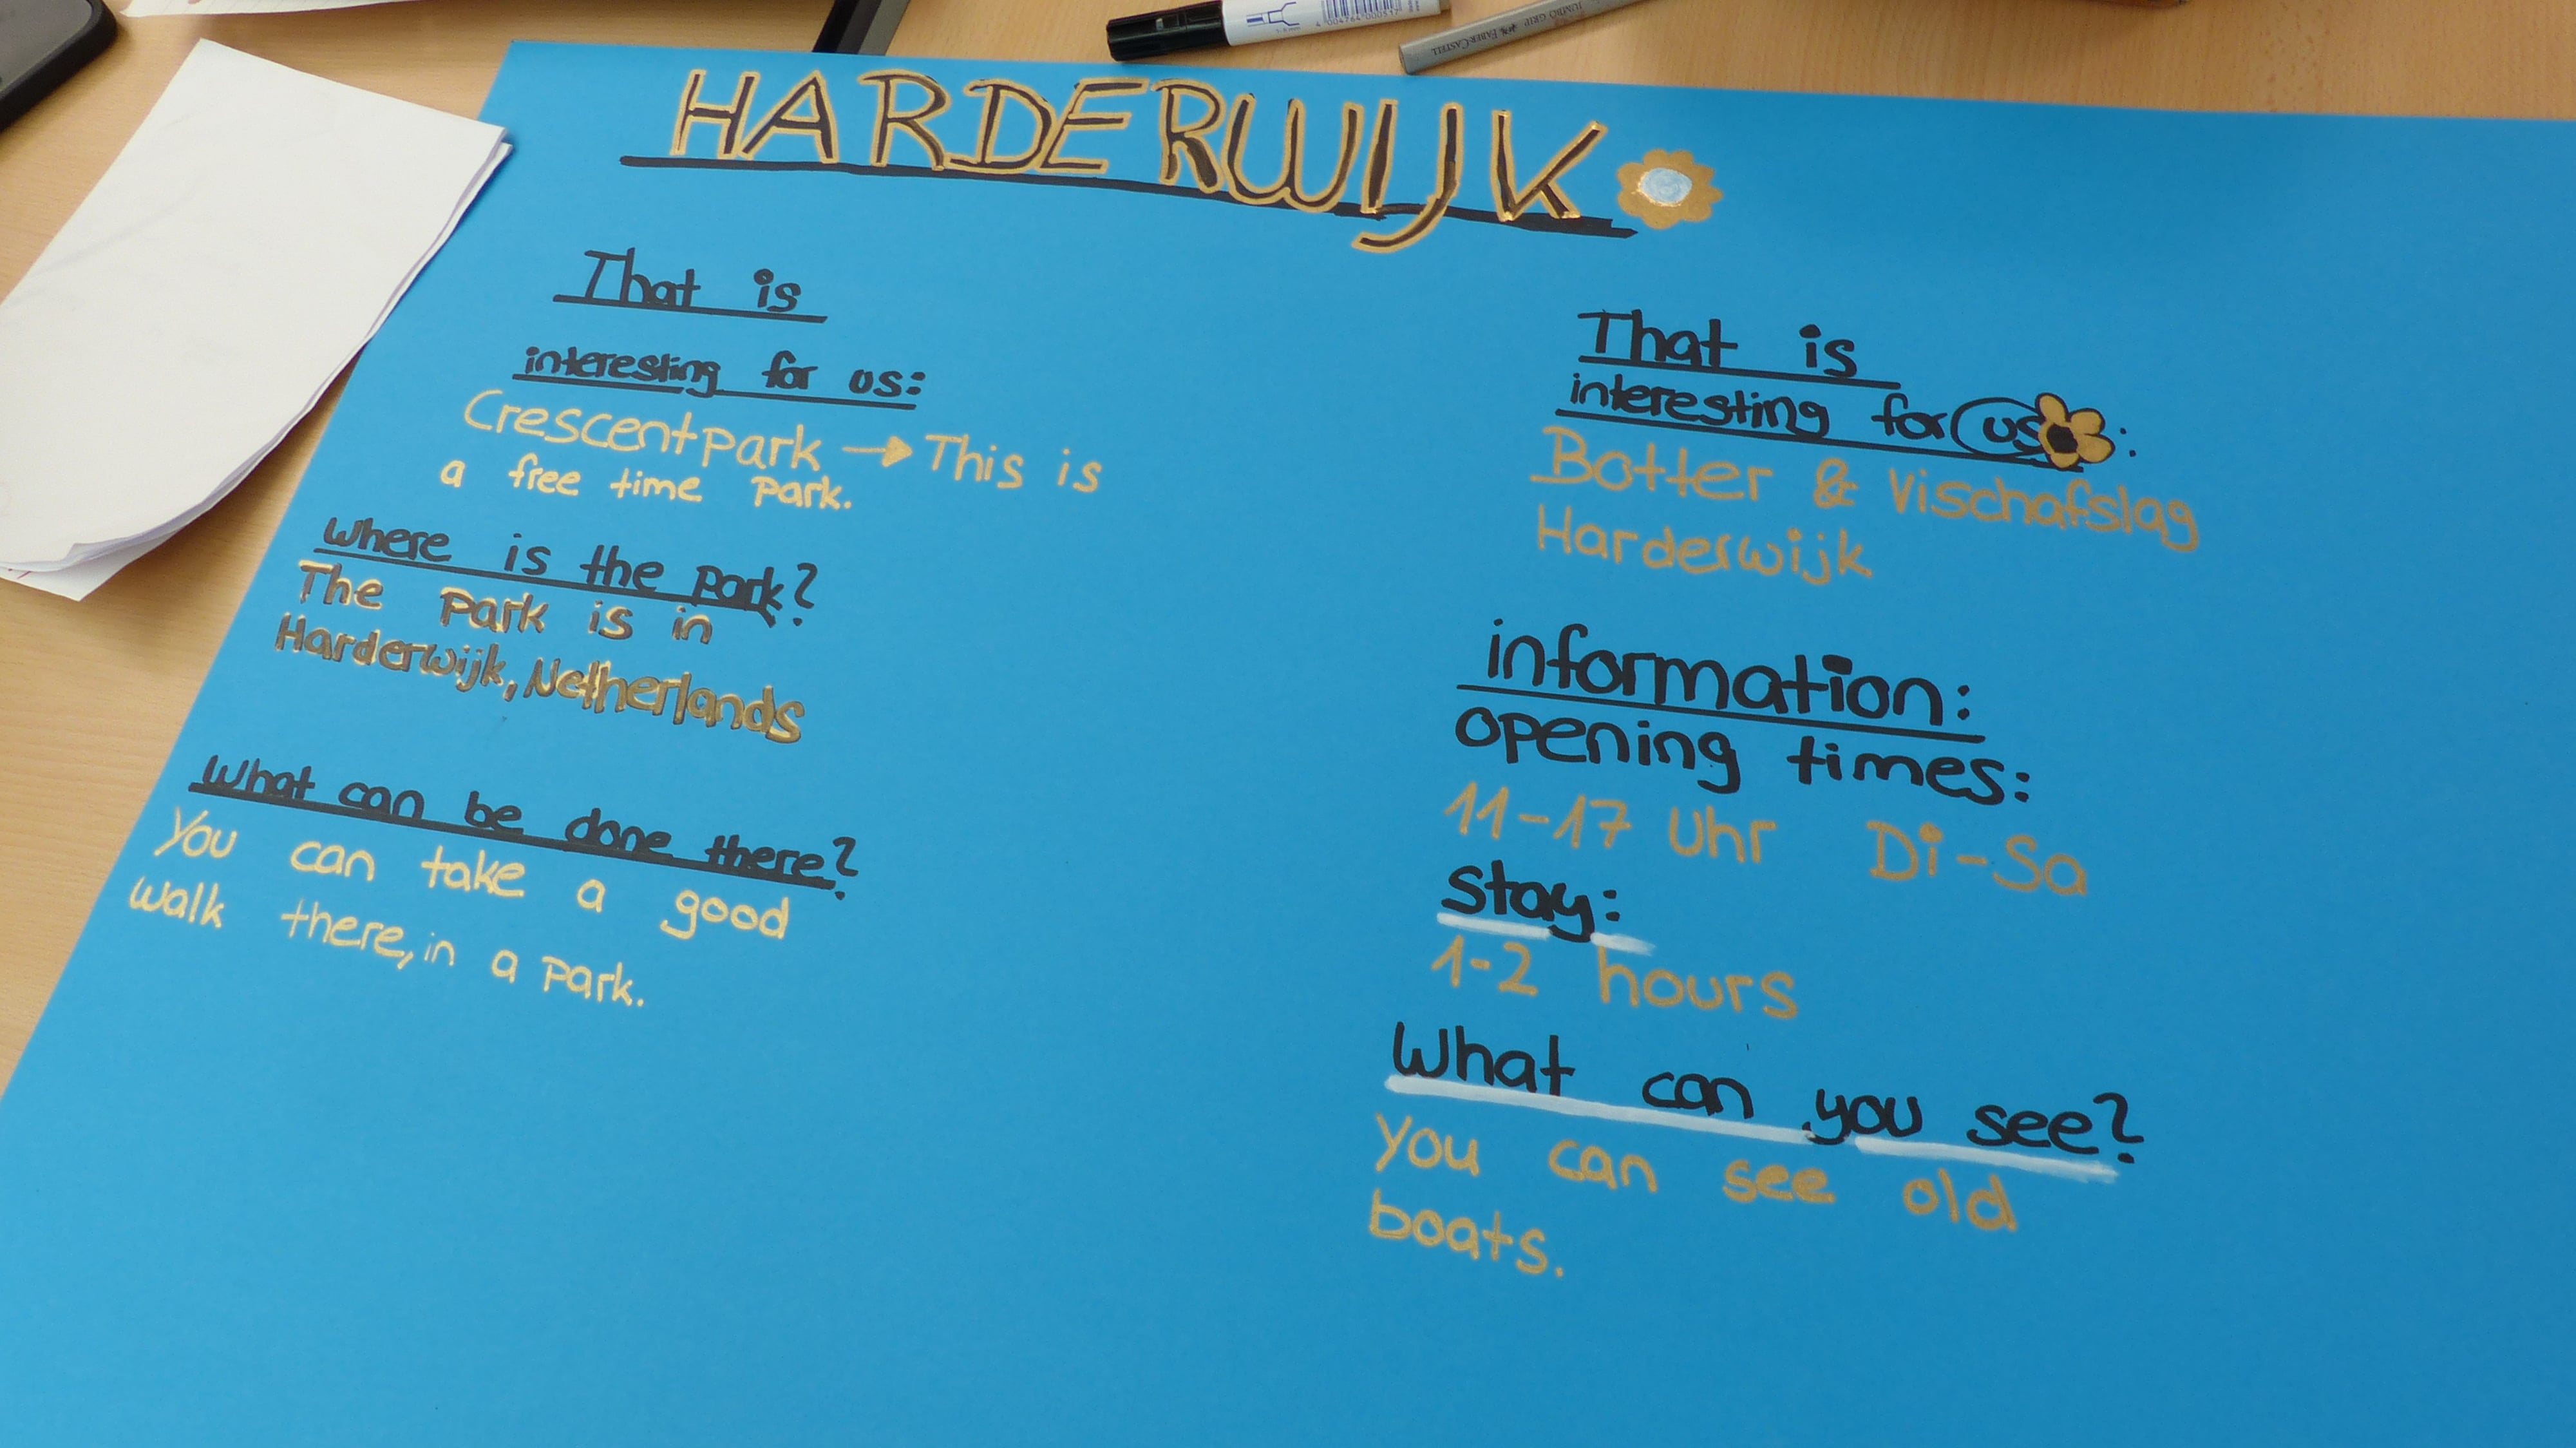 4 004764 000517
JUMBO GRIP FABER-CASTELL
HARDERWIJK
That is
interesting for us:
Crescentpark → This is
a free time park.
Where is the park?
The park is in
Harderwijk, Netherlands
What can be done there?
You can take a good
walk there, in a park.
That is
interesting for us:
Botter & Vischafslag
Harderwijk
information:
opening times:
11-17 Uhr Di-Sa
Stay:
1-2 hours
What can you see?
You can see old
boats.